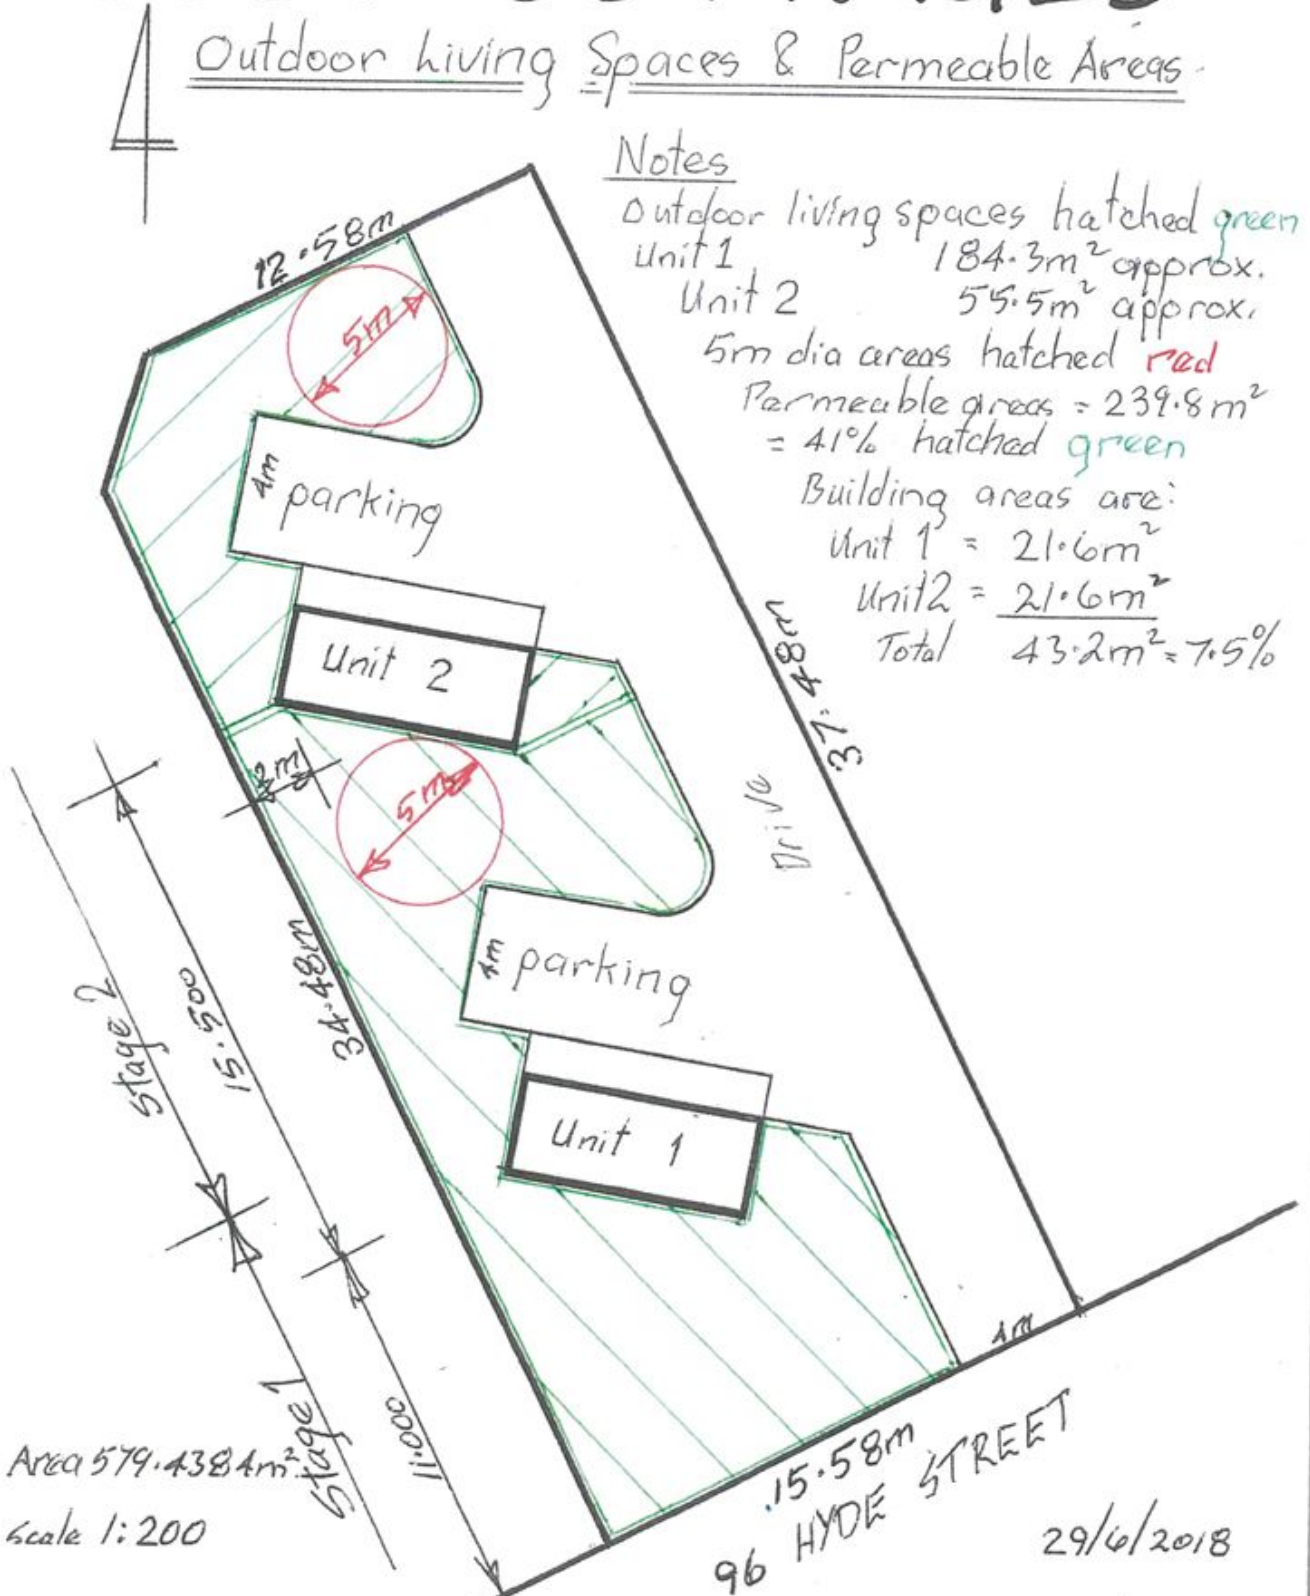 Outdoor Living Spaces & Permeable Areas.
Notes
Outdoor living spaces hatched green
Unit 1 184.3m² approx.
Unit 2 55.5m² approx.
5m dia areas hatched red
Permeable areas = 239.8m²
= 41% hatched green
Building areas are:
Unit 1 = 21.6m²
Unit 2 = 21.6m²
Total 43.2m² = 7.5%
12.58m
5m
4m
parking
Unit 2
37.48m
2m
5m
Drive
4m
parking
34.48m
Stage 2
15.500
Unit 1
4m
Stage 1
11.000
Area 579.4384m²
Scale 1:200
15.58m
96 HYDE STREET
29/6/2018